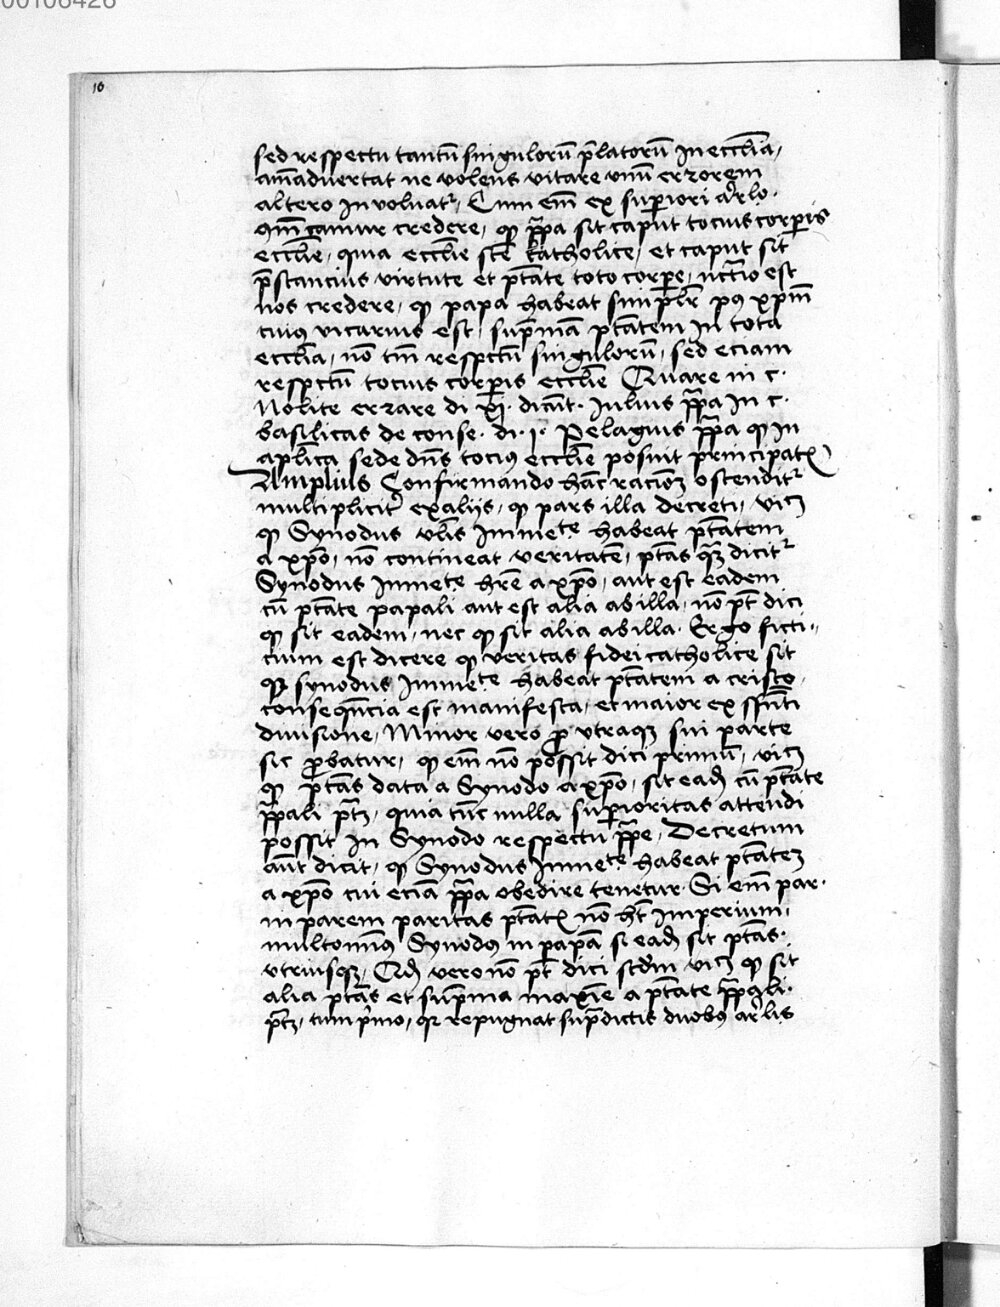 00106426
10
sed respectu tantū singulorū p̄latorū In eccl̄ia,
aīaduertat ne volens vitare vnū errorem
altero Inuoluatr, Cum em̄ ex superiori ar̄lo
credere, qp pp̄a sit caput tocius corꝑis
eccl̄ie, quia eccl̄ie sc̄te katholice, et caput sit
p̄stancius virtute et ptāte toto corꝑe, est
nos credere, qp papa habeat simpl̄r pꝰ xp̄m
cuiꝰ vicarius est, sup̄mā ptātem In tota
eccl̄ia, nō tm̄ respctū singulorū, sed eciam
respctū tocius corꝑis eccl̄ie Quare in c.
Nolite errare di xi. dicūt. Iulius pp̄a In c.
basilicas de conse. di. i. Pelagius pp̄a qp In
apl̄ica sede dn̄s tociꝰ eccl̄ie posuit principatꝫ
Amplius Confirmando hāc racionꝫ ostenditr
multipliciter ex alijs, qp pars illa decreti, vicꝫ
qp Synodus vl̄is Immēte habeat ptātem
a xp̄o, nō contineat veritatē, ptās qꝫ dicitr
Synodus Immēte hr̄e a xp̄o, aut est eadem
cū ptāte papali aut est alia ab illa, nō pt̄ dici
qp sit eadem, nec qp sit alia ab illa. Ergo ficti-
cium est dicere qp veritas fidei catholice sit
qp synodus Immēte habeat ptātem a cristo,
consequēcia est manifesta, et maior ex sffn̄ti
diuisione, Minor vero pro vtraqꝫ sui parte
sic probatur, qp em̄ nō possit dici primū, vicꝫ
qp ptās data a Synodo a xp̄o, sit eadꝫ cū ptāte
pp̄ali ptꝫ, quia tūc nulla superioritas attendi
possit In Synodo respectu pp̄e, Decretum
aūt dicit, qp Synodus Immēte habeat ptātēꝫ
a xp̄o cui eciā pp̄a obedire tenetur. Si em̄ par
in parem paritas ptātꝫ nō ht̄ Imperium,
multominꝰ Synodꝰ in papā si eadꝫ sit ptās
vtriusqꝫ, Qdꝫ vero nō pt̄ dici scdm̄ vicꝫ qp sit
alia ptās et sup̄ma maxīe a ptāte pp̄ali
ptꝫ, tum p̄mo, qr repugnat sup̄dictis duobꝰ ar̄lis